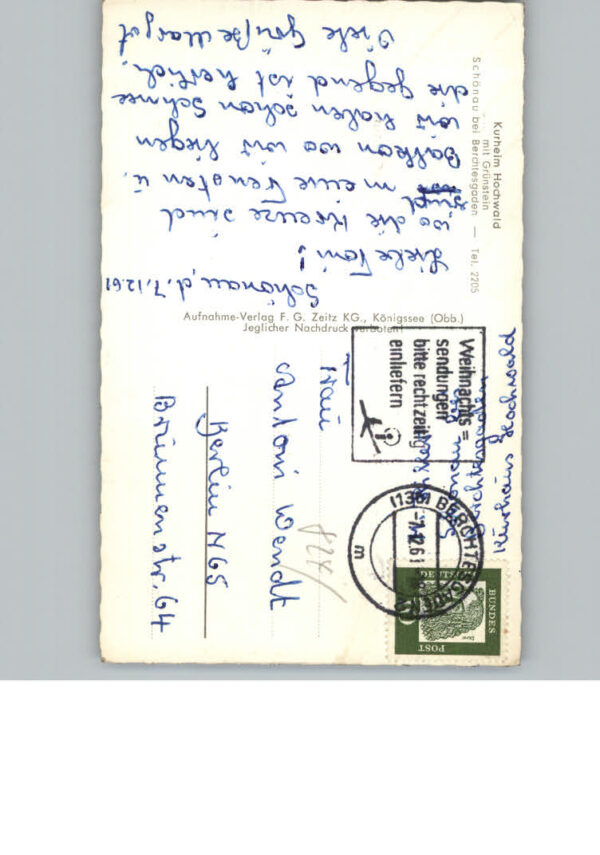 Kurheim Hochwald
mit Grünstein
Schönau bei Berchtesgaden — Tel. 2205
Schönau, d. 7.12.61
Liebe Toni!
wo die Kreuze sind
sind meine Fenster u.
Balkon wo wir liegen
wir haben schon Schnee
die gegend ist herlich.
Viele Grüße Margot
Aufnahme-Verlag F. G. Zeitz KG., Königssee (Obb.)
Jeglicher Nachdruck verboten!
Kurhaus Hochwald
Weihnachts=
sendungen
bitte rechtzeitig
einliefern
(13b) BERCHTESGADEN
-7.12.61
m
DEUTSCHE
BUNDES
POST
Frau
Antoni Wendt
Berlin N65
Brunnenstr. 64